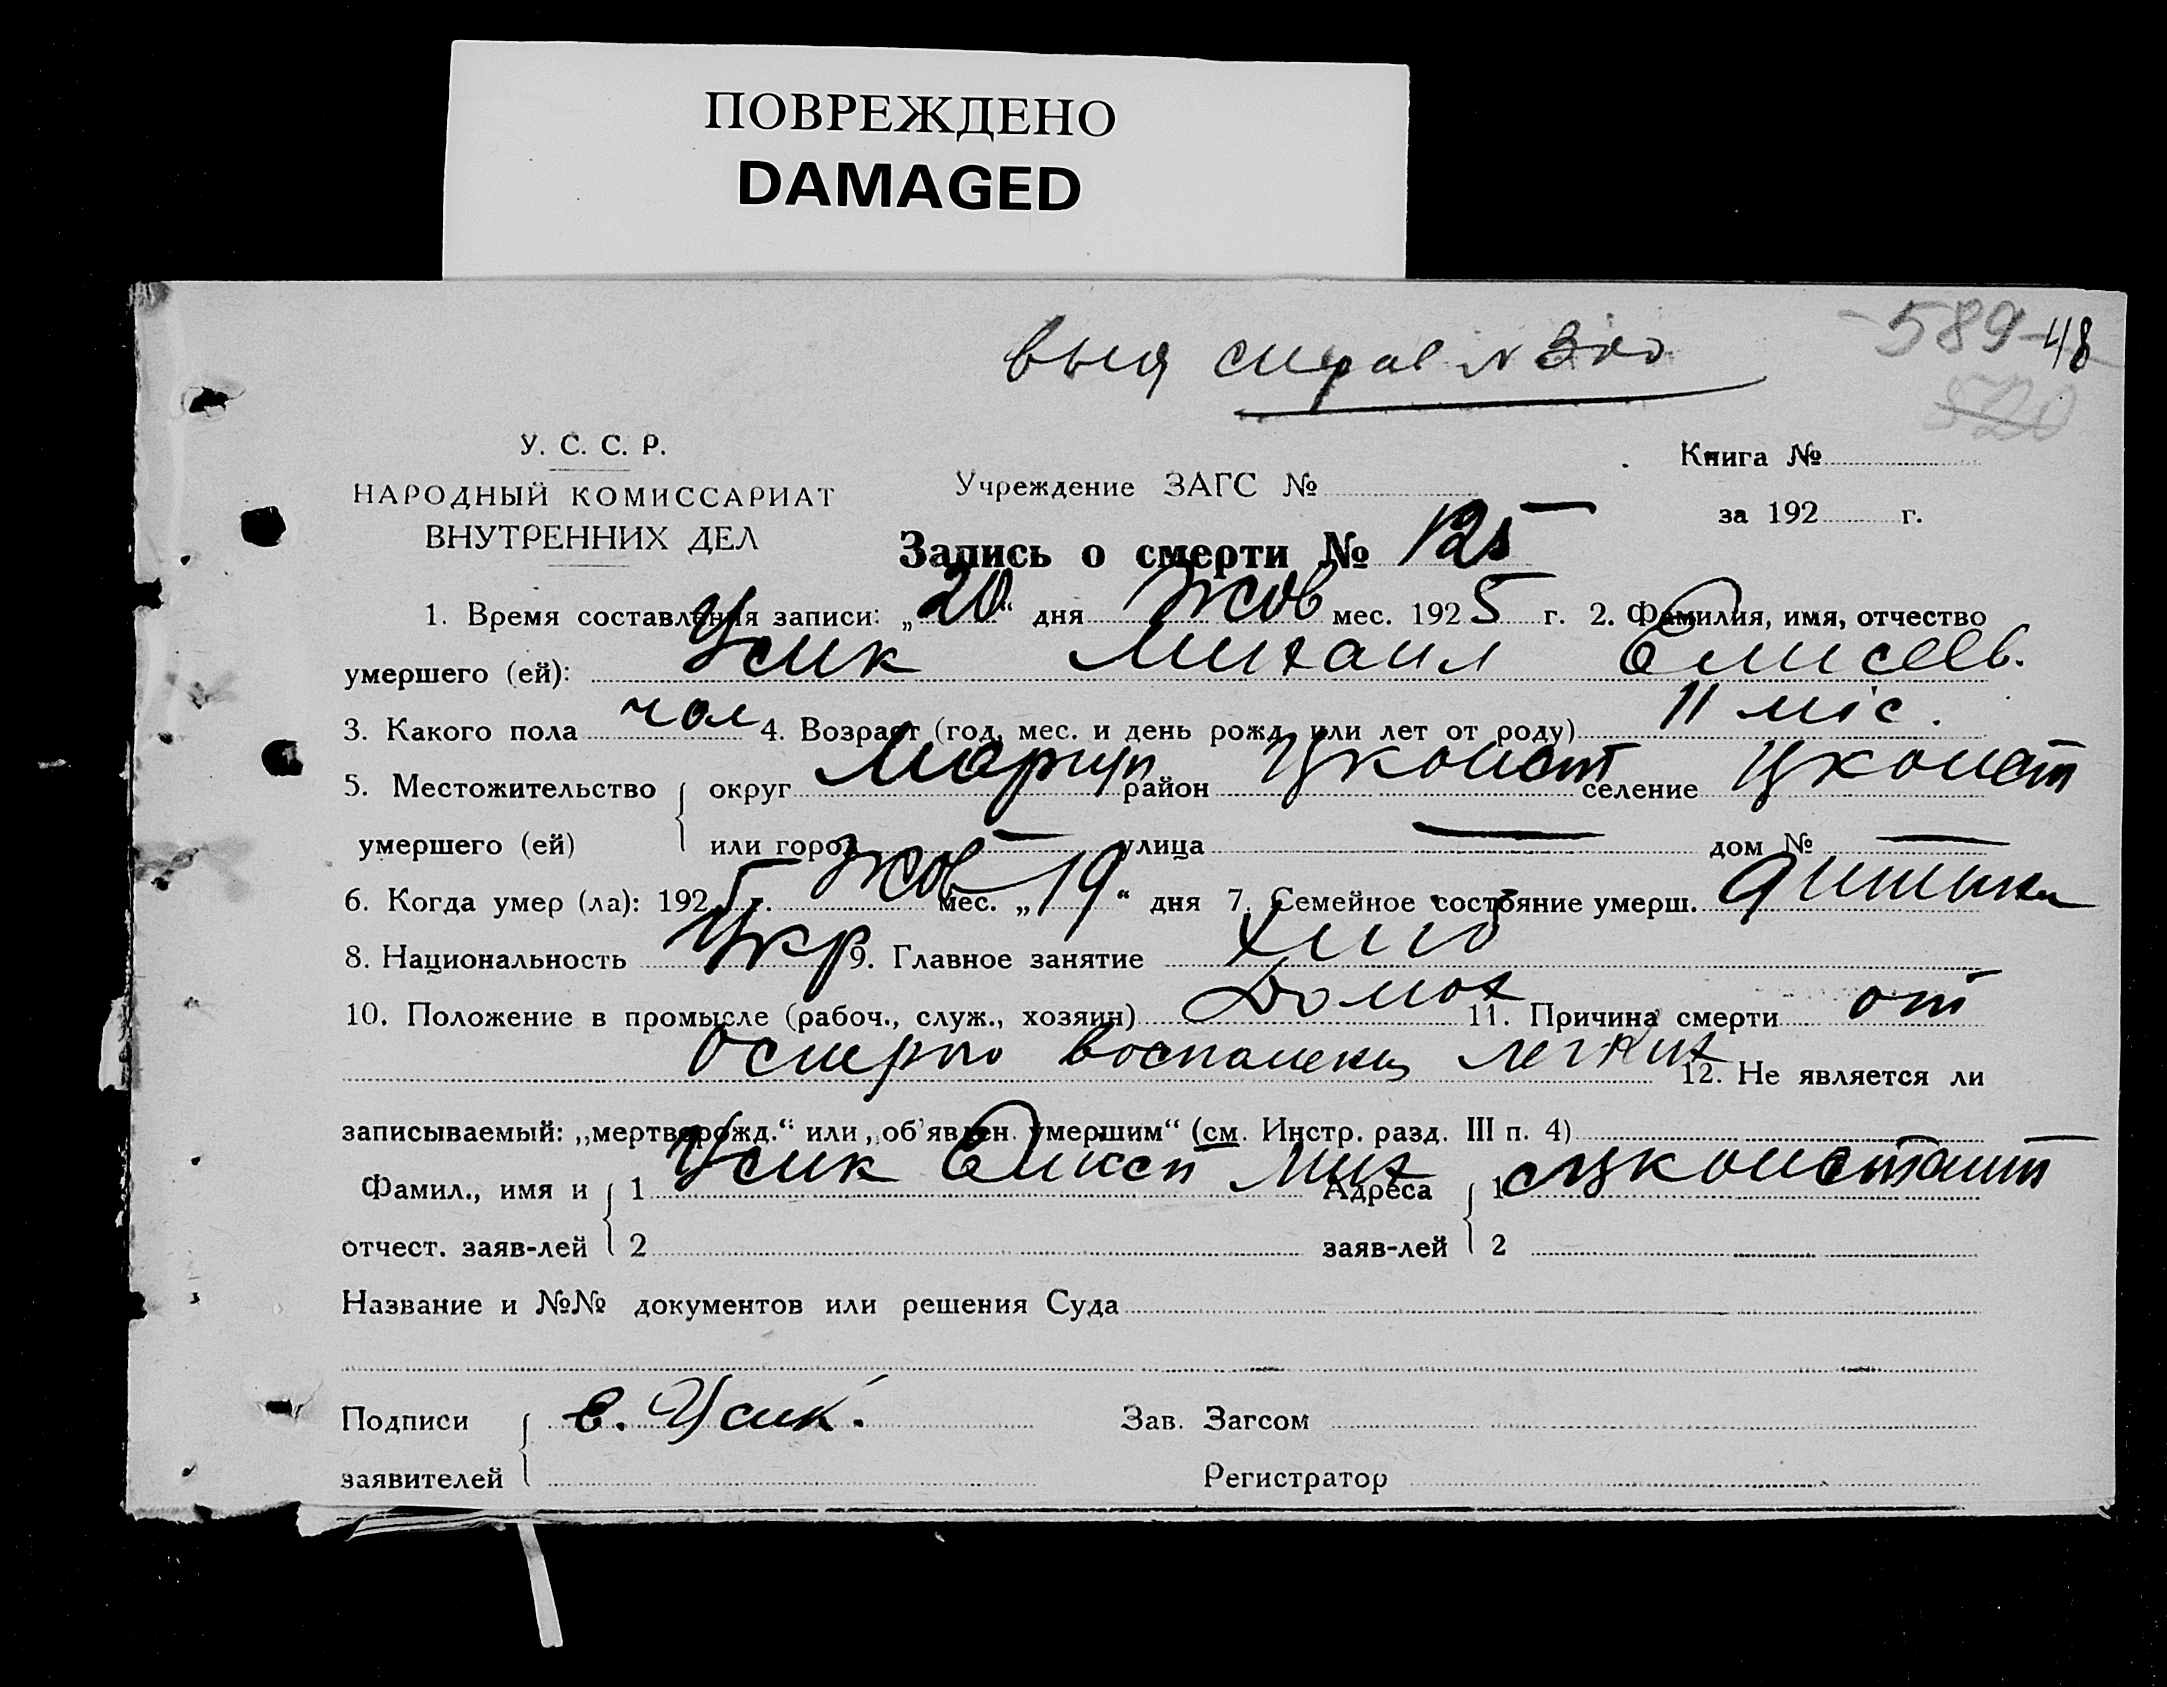 ПОВРЕЖДЕНО
DAMAGED
-589-48
520
У. С. С. Р.
НАРОДНЫЙ КОМИССАРИАТ
ВНУТРЕННИХ ДЕЛ
Учреждение ЗАГС №
Книга №
за 192 г.
Запись о смерти № 125
1. Время составления записи: „20" дня Жов мес. 1925 г. 2. Фамилия, имя, отчество
умершего (ей): Усик Михаил Елисеев.
3. Какого пола чол 4. Возраст (год, мес. и день рожд. или лет от роду) 11 міс.
5. Местожительство округ Мариуп район Цконст селение Цконст
умершего (ей) или город — улица — дом № —
6. Когда умер (ла): 1925. Жов мес. „19" дня 7. Семейное состояние умерш.
8. Национальность Укр 9. Главное занятие Хліб
10. Положение в промысле (рабоч., служ., хозяин) Домох 11. Причина смерти от
воспаления легких 12. Не является ли
записываемый: „мертворожд." или „об'явлен. умершим" (см. Инстр. разд. III п. 4)
Фамил., имя и 1 Усик Елисей Мих Адреса 1
отчест. заяв-лей 2 заяв-лей 2
Название и №№ документов или решения Суда
Подписи Е. Усик. Зав. Загсом
заявителей Регистратор